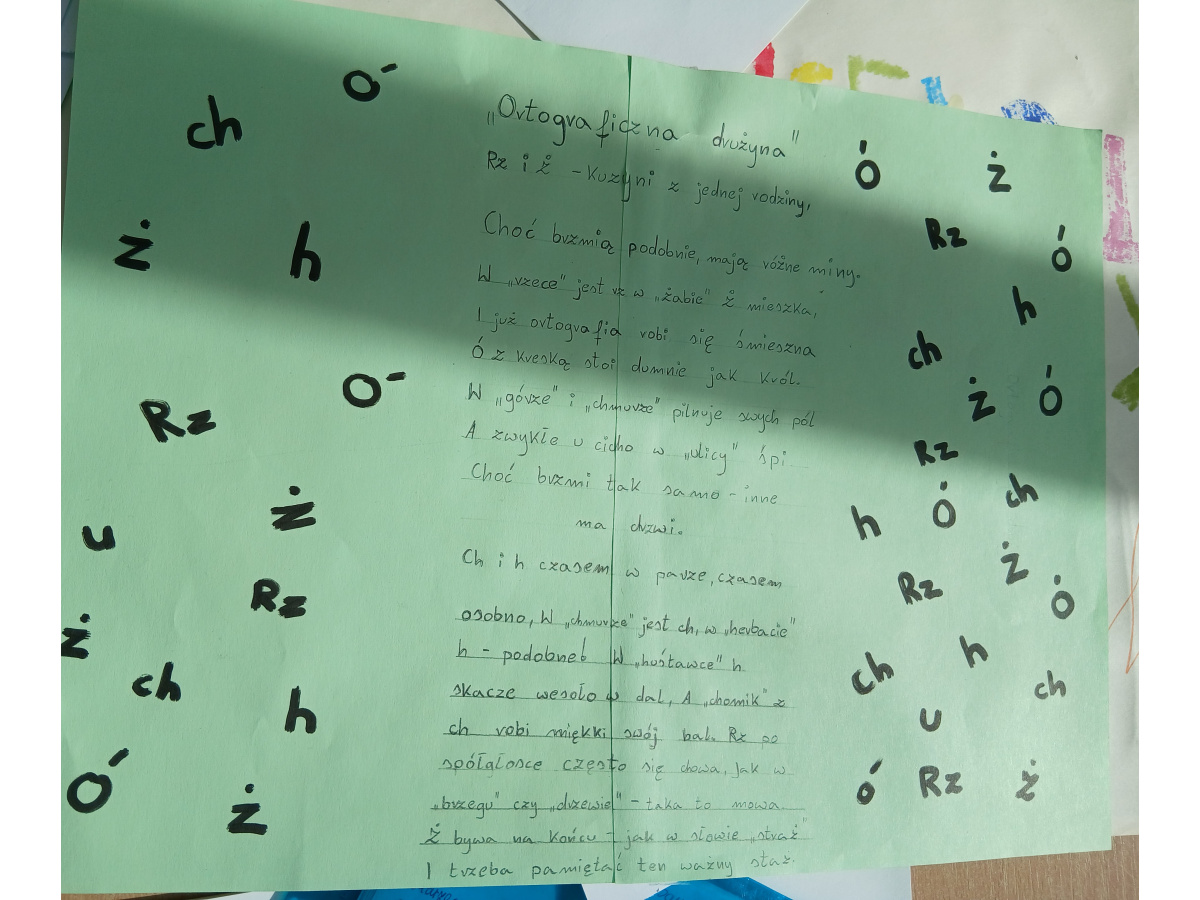 ch
O´
Ż
h
Rz
O´
u
Ż
Rz
Ż
ch
h
Ó
Ż
"Ortograficzna drużyna"
Rz i Ż - Kuzyni z jednej rodziny,
Choć brzmią podobnie, mają różne miny.
W „rzece" jest rz w „żabie" Ż mieszka,
I już ortografia robi się śmieszna
Ó z kreską stoi dumnie jak król.
W „górze" i „chmurze" pilnuje swych pól
A zwykłe u cicho w „ulicy" śpi
Choć brzmi tak samo - inne
ma drzwi.
Ch i h czasem w parze, czasem
osobno, W „chmurze" jest ch, w „herbacie"
h - podobne! W „huśtawce" h
skacze wesoło w dal, A „chomik" z
ch robi miękki swój bal. Rz po
spółgłosce często się chowa, jak w
„brzegu" czy „drzewie" - taka to mowa.
Ż bywa na końcu - jak w słowie „straż"
I trzeba pamiętać ten ważny staż.
Ó
Ż
Rz
Ó
h
ch
Ż
Ó
Rz
ch
Ó
h
Ż
Rz
Ó
h
ch
ch
u
Ó
Rz
Ż